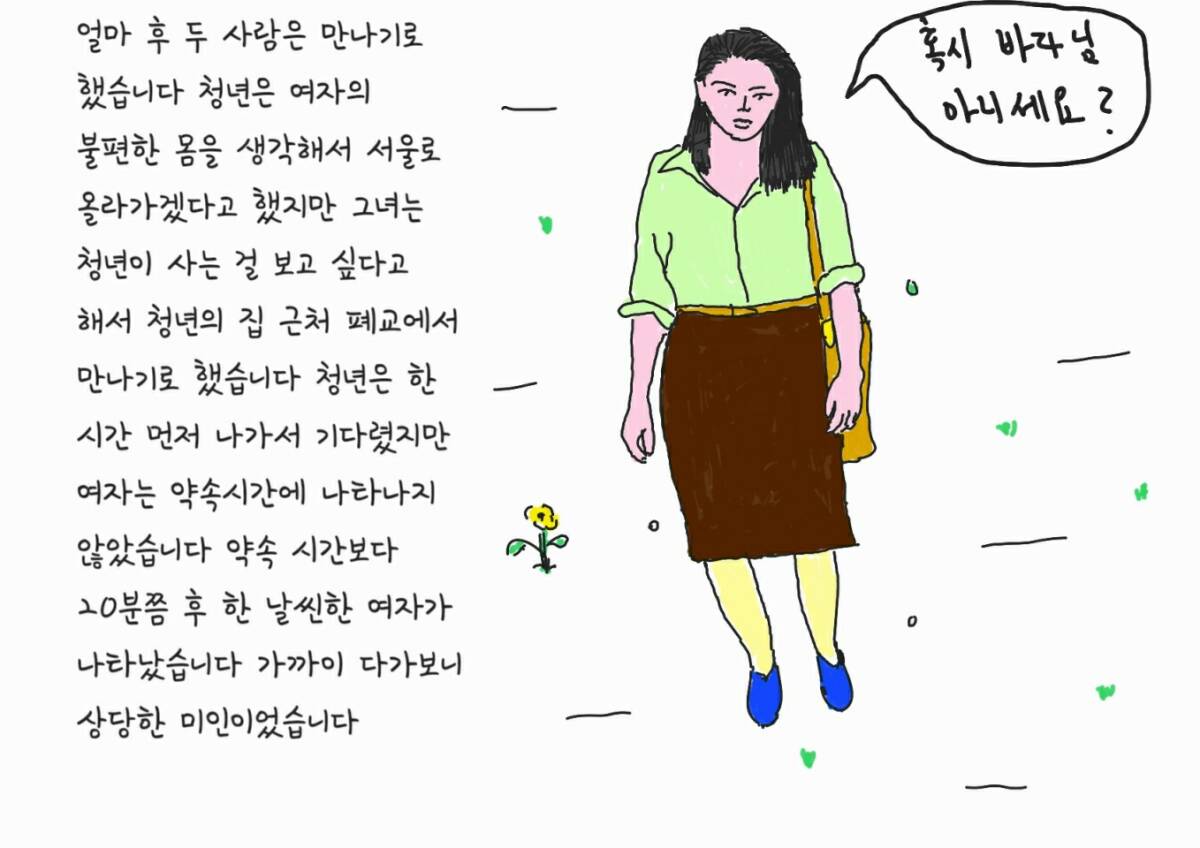 얼마 후 두 사람은 만나기로
했습니다 청년은 여자의
불편한 몸을 생각해서 서울로
올라가겠다고 했지만 그녀는
청년이 사는 걸 보고 싶다고
해서 청년의 집 근처 폐교에서
만나기로 했습니다 청년은 한
시간 먼저 나가서 기다렸지만
여자는 약속시간에 나타나지
않았습니다 약속 시간보다
20분쯤 후 한 날씬한 여자가
나타났습니다 가까이 다가보니
상당한 미인이었습니다
혹시 바라님
아니세요?